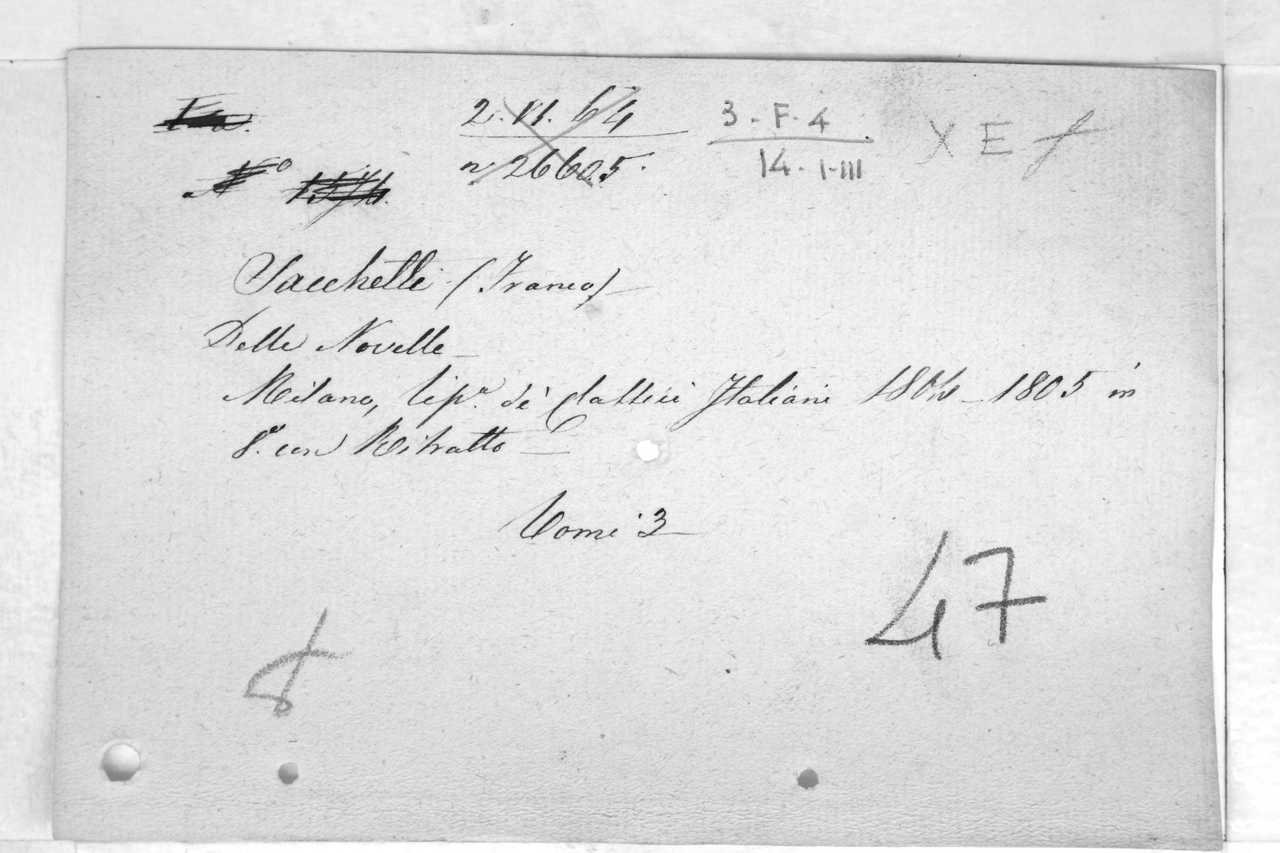 2. VI. 64
n 26605.
3 - F. 4
14. I-III
X E f
Nº
Sacchetti (Franco)
Delle Novelle
Milano, tip.ª de' Classici Italiani 1804-1805 in
8.º con Ritratto
Tomi 3
47
8